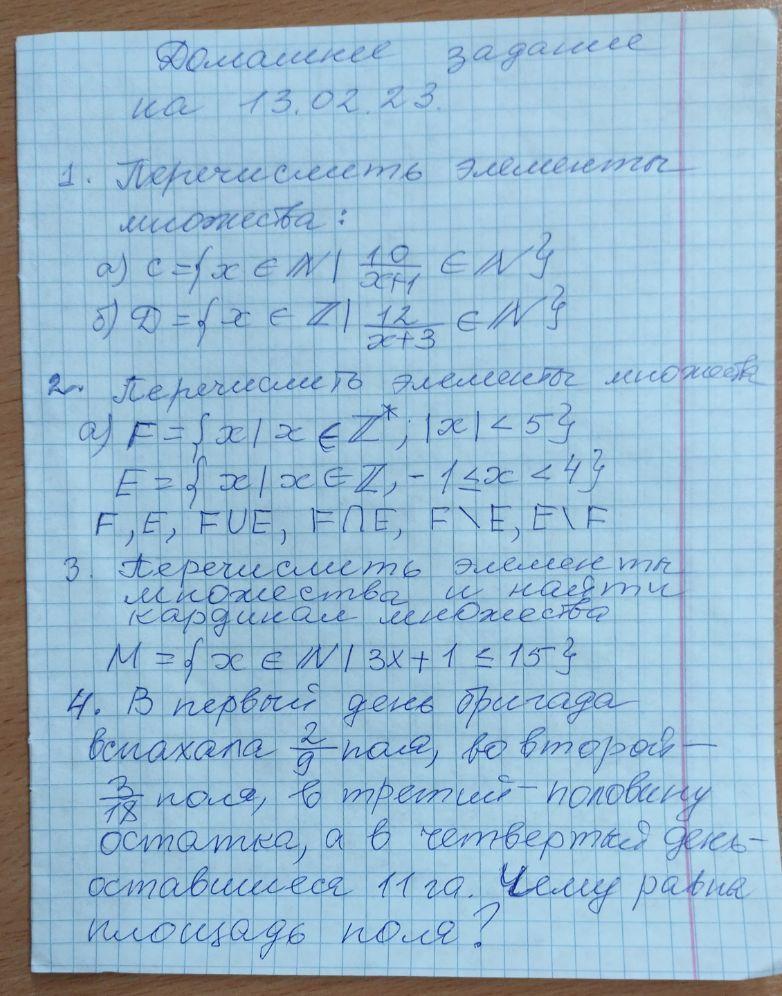 Домашнее задание
на 13.02.23.
1. Перечислить элементы
множества:
а) C={x ∈ ℕ | 10/(x+1) ∈ ℕ}
б) D={x ∈ ℤ | 12/(x+3) ∈ ℕ}
2. Перечислить элементы множества
а) F={x | x ∈ ℤ*; |x| < 5}
E={x | x ∈ ℤ, -1 ≤ x < 4}
F, E, F∪E, F∩E, F\E, E\F
3. Перечислить элементы
множества и найти
кардинал множества
M={x ∈ ℕ | 3x+1 ≤ 15}
4. В первый день бригада
вспахала 2/9 поля, во второй –
3/18 поля, в третий – половину
остатка, а в четвертый день –
оставшиеся 11 га. Чему равна
площадь поля?